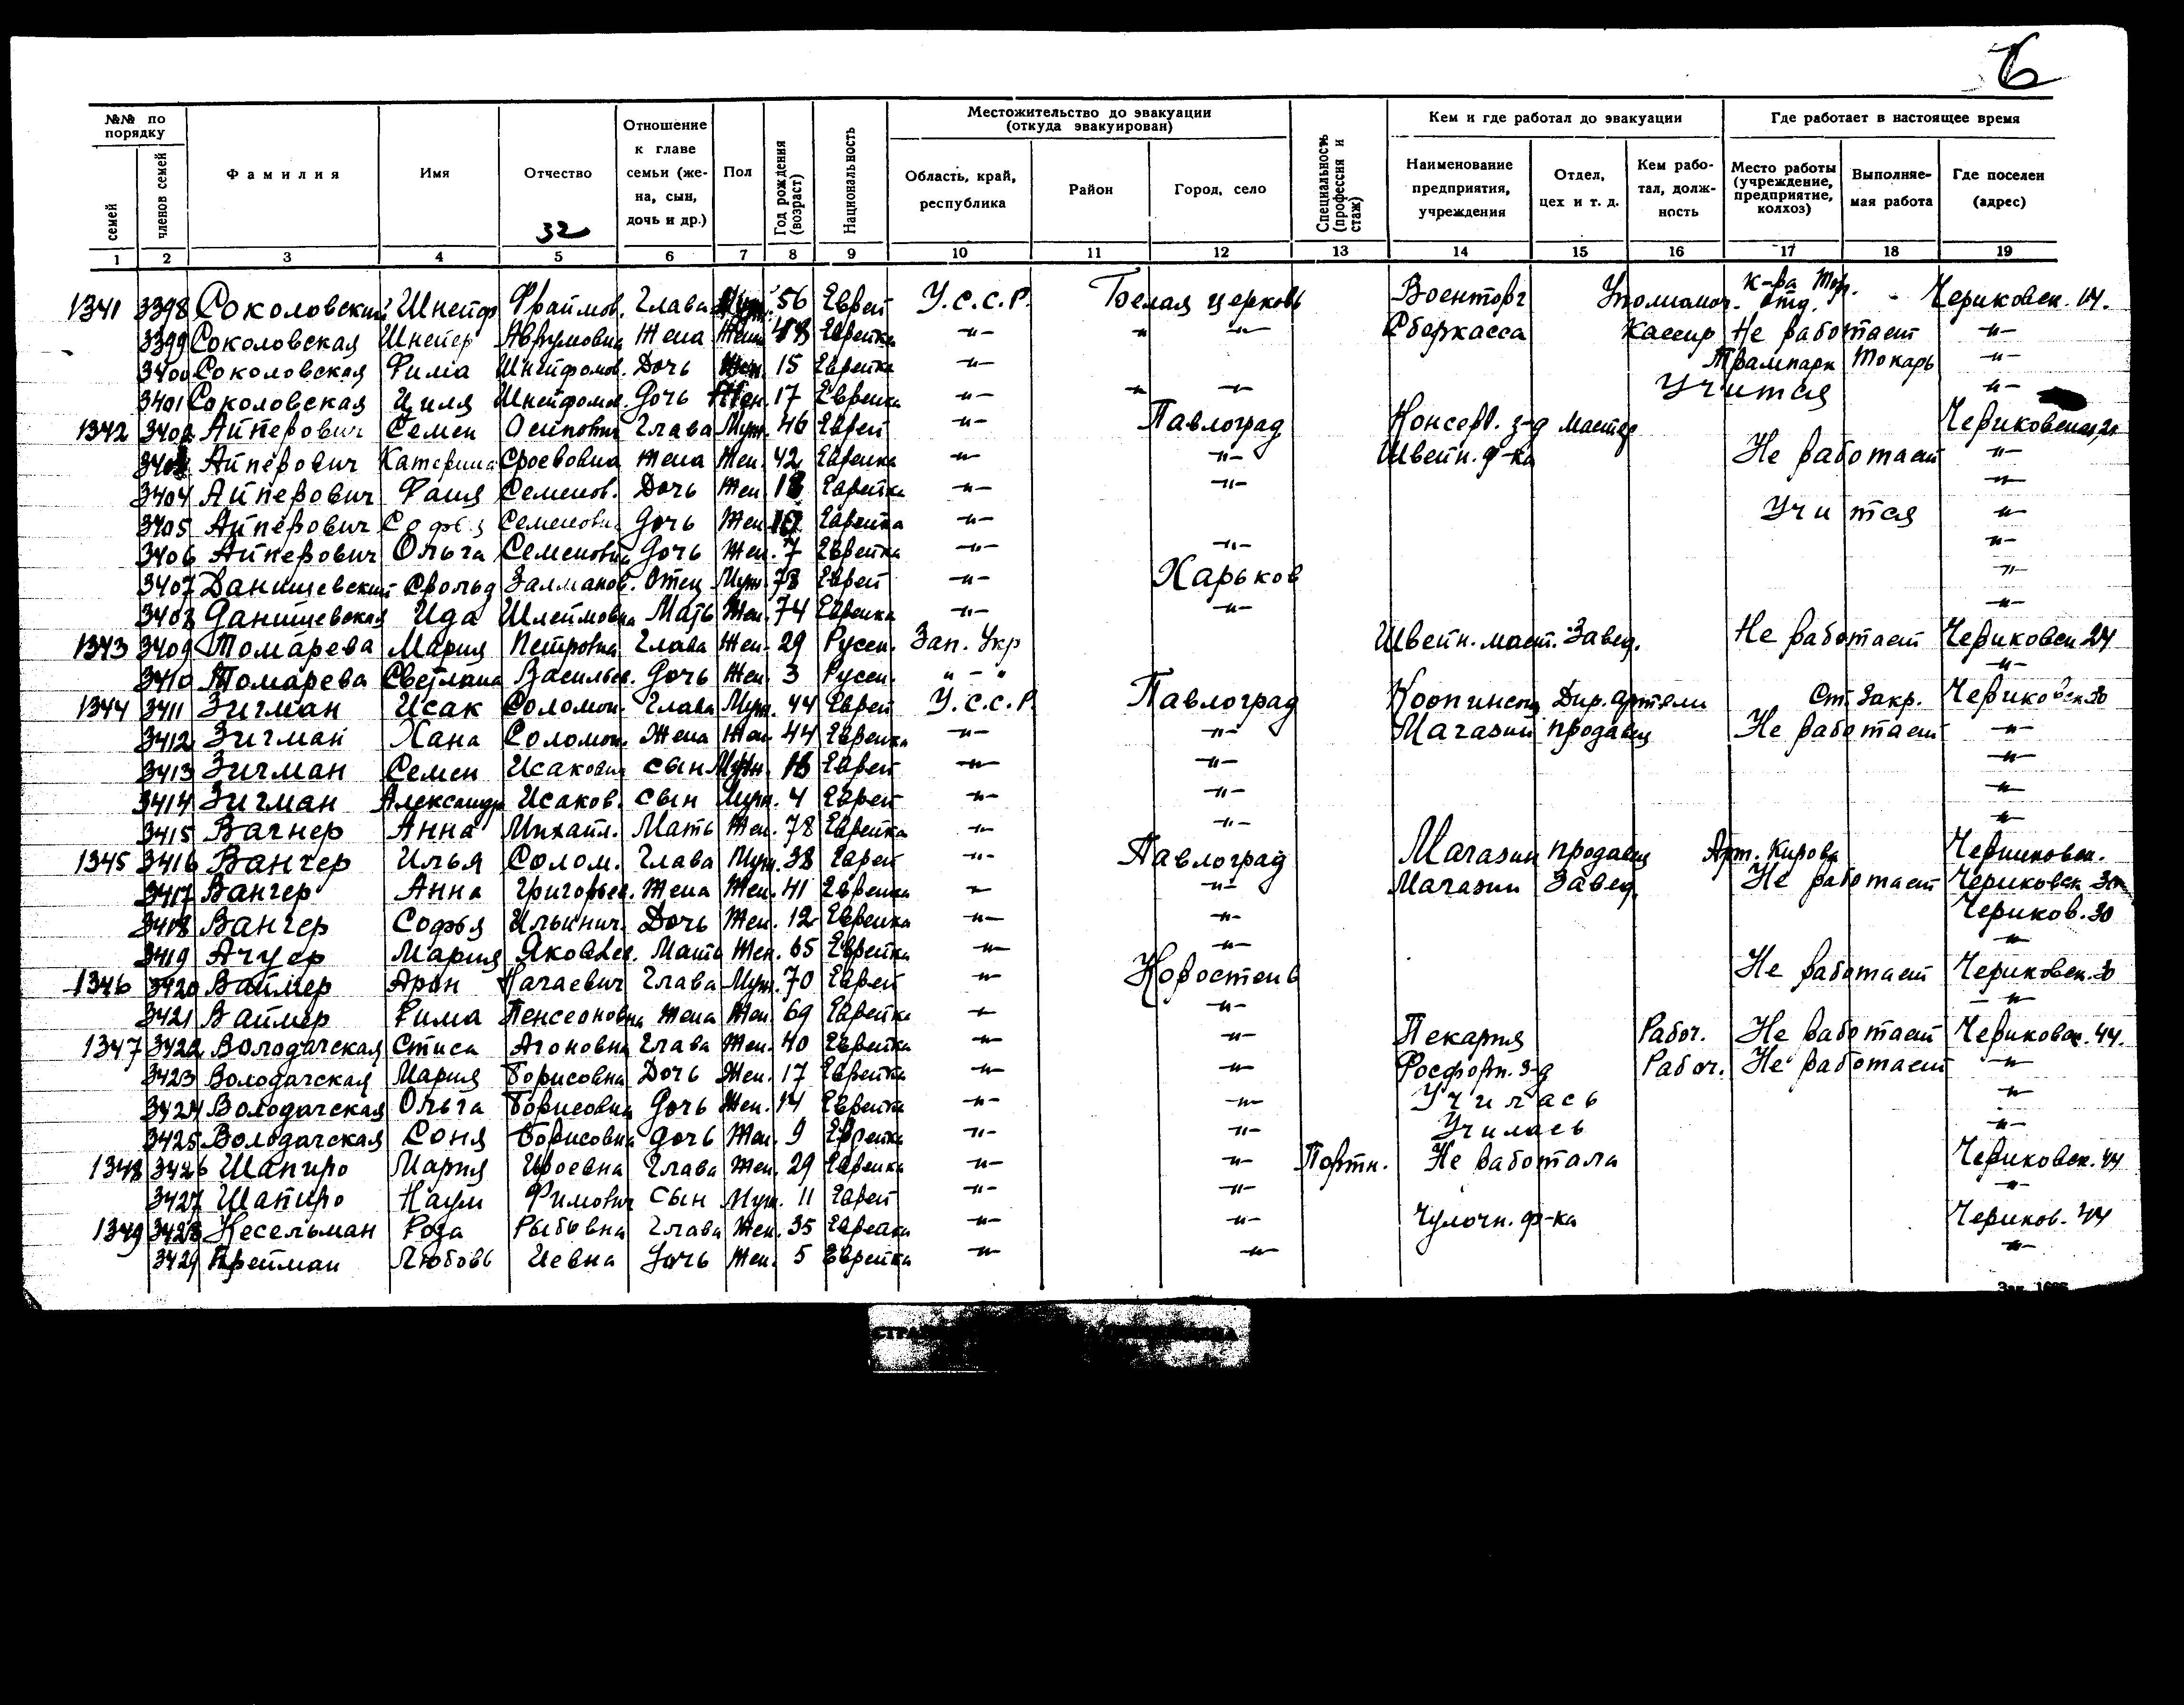 6
№№ по порядку
семей
членов семей
Фамилия
Имя
Отчество
32
Отношение к главе семьи (жена, сын, дочь и др.)
Пол
Год рождения (возраст)
Национальность
Местожительство до эвакуации (откуда эвакуирован)
Область, край, республика
Район
Город, село
Специальность (профессия и стаж)
Кем и где работал до эвакуации
Наименование предприятия, учреждения
Отдел, цех и т. д.
Кем работал, должность
Где работает в настоящее время
Место работы (учреждение, предприятие, колхоз)
Выполняемая работа
Где поселен (адрес)
1 2 3 4 5 6 7 8 9 10 11 12 13 14 15 16 17 18 19
1341 3398 Соколовский Шнейер Фраймов. Глава Муж. 56 Еврей У.С.С.Р. Белая церковь Военторг Уполномоч. Чериковск. 14.
3399 Соколовская Шнейер Аврумовна Жена Жен 48 Еврейка -"- " -"- Сберкасса Кассир Не работает -"-
3400 Соколовская Фима Дочь Жен. 15 Еврейка -"- Трампарк Токарь -"-
3401 Соколовская Циля Дочь Жен. 17 Еврейка -"- -"- -"- Учится -"-
1342 3402 Айнерович Семен Осипович Глава Муж. 46 Еврей -"- Павлоград Консерв. з-д мастер Чериковская
3403 Айнерович Катерина Жена Жен. 42 Еврейка -"- -"- Швейн. ф-ка Не работает -"-
3404 Айнерович Фаня Семенов. Дочь Жен 18 Еврейка -"- -"- -"-
3405 Айнерович Софья Семеновна Дочь Жен Еврейка -"- Учится -"-
3406 Айнерович Ольга Семеновна Дочь Жен. 7 Еврейка -"- -"- -"-
3407 Данишевский Залманов. Отец Муж. 78 Еврей -"- Харьков -"-
3408 Данишевская Ида Шлеймовна Мать Жен. 74 Еврейка -"- -"- -"-
1343 3409 Томарева Мария Петровна Глава Жен. 29 Русск. Зап. Укр Швейн. маст. Завед. Не работает Чериковск 24
3410 Томарева Светлана Васильев. Дочь Жен. 3 Русск. " - " -"-
1344 3411 Зигман Исак Соломон. Глава Муж. 44 Еврей У.С.С.Р. Павлоград Дир. артели Ст. Закр. Чериковск. 30
3412 Зигман Хана Соломон. Жена Жен. 44 Еврейка -"- -"- Магазин продавец Не работает -"-
3413 Зигман Семен Исакович сын Муж. 18 Еврей -"- -"- -"-
3414 Зигман Александр Исаков. сын Муж. 4 Еврей -"- -"- -"-
3415 Вагнер Анна Михайл. Мать Жен. 78 Еврейка -"- -"- -"-
1345 3416 Вангер Илья Солом. Глава Муж. 38 Еврей -"- Павлоград Магазин продавец Арт. Кирова
3417 Вангер Анна Григорьев. Жена Жен. 41 Еврейка -"- -"- Магазин Завед. Не работает Чериковск 30
3418 Вангер Софья Ильинич. Дочь Жен. 12 Еврейка -"- -"- Чериков. 30
3419 Ачуер Мария Яковлев. Мать Жен. 65 Еврейка -"- -"- -"-
1346 3420 Ваймер Арон Глава Муж. 70 Еврей -"- Коростень Не работает Чериковск. 30
3421 Ваймер Рима Жена Жен. 69 Еврейка -"- -"- -"-
1347 3422 Володарская Агоновна Глава Жен. 40 Еврейка -"- -"- Пекарня Рабоч. Не работает Чериковск. 44.
3423 Володарская Мария Борисовна Дочь Жен. 17 Еврейка -"- -"- Фосфорн. з-д Рабоч. Не работает -"-
3424 Володарская Ольга Борисовна Дочь Жен. 14 Еврейка -"- -"- Училась -"-
3425 Володарская Соня Борисовна дочь Жен. 9 Еврейка -"- -"- Училась -"-
1348 3426 Шапиро Мария Глава Жен. 29 Еврейка -"- -"- Портн. Не работала Чериковск. 44
3427 Шапиро Наум Фимович сын Муж. 11 Еврей -"- -"- -"-
1349 3428 Кесельман Роза Глава Жен. 35 Еврейка -"- -"- Чулочн. ф-ка Чериков. 44
3429 Любовь Иевна Дочь Жен. 5 Еврейка -"- -"- -"-